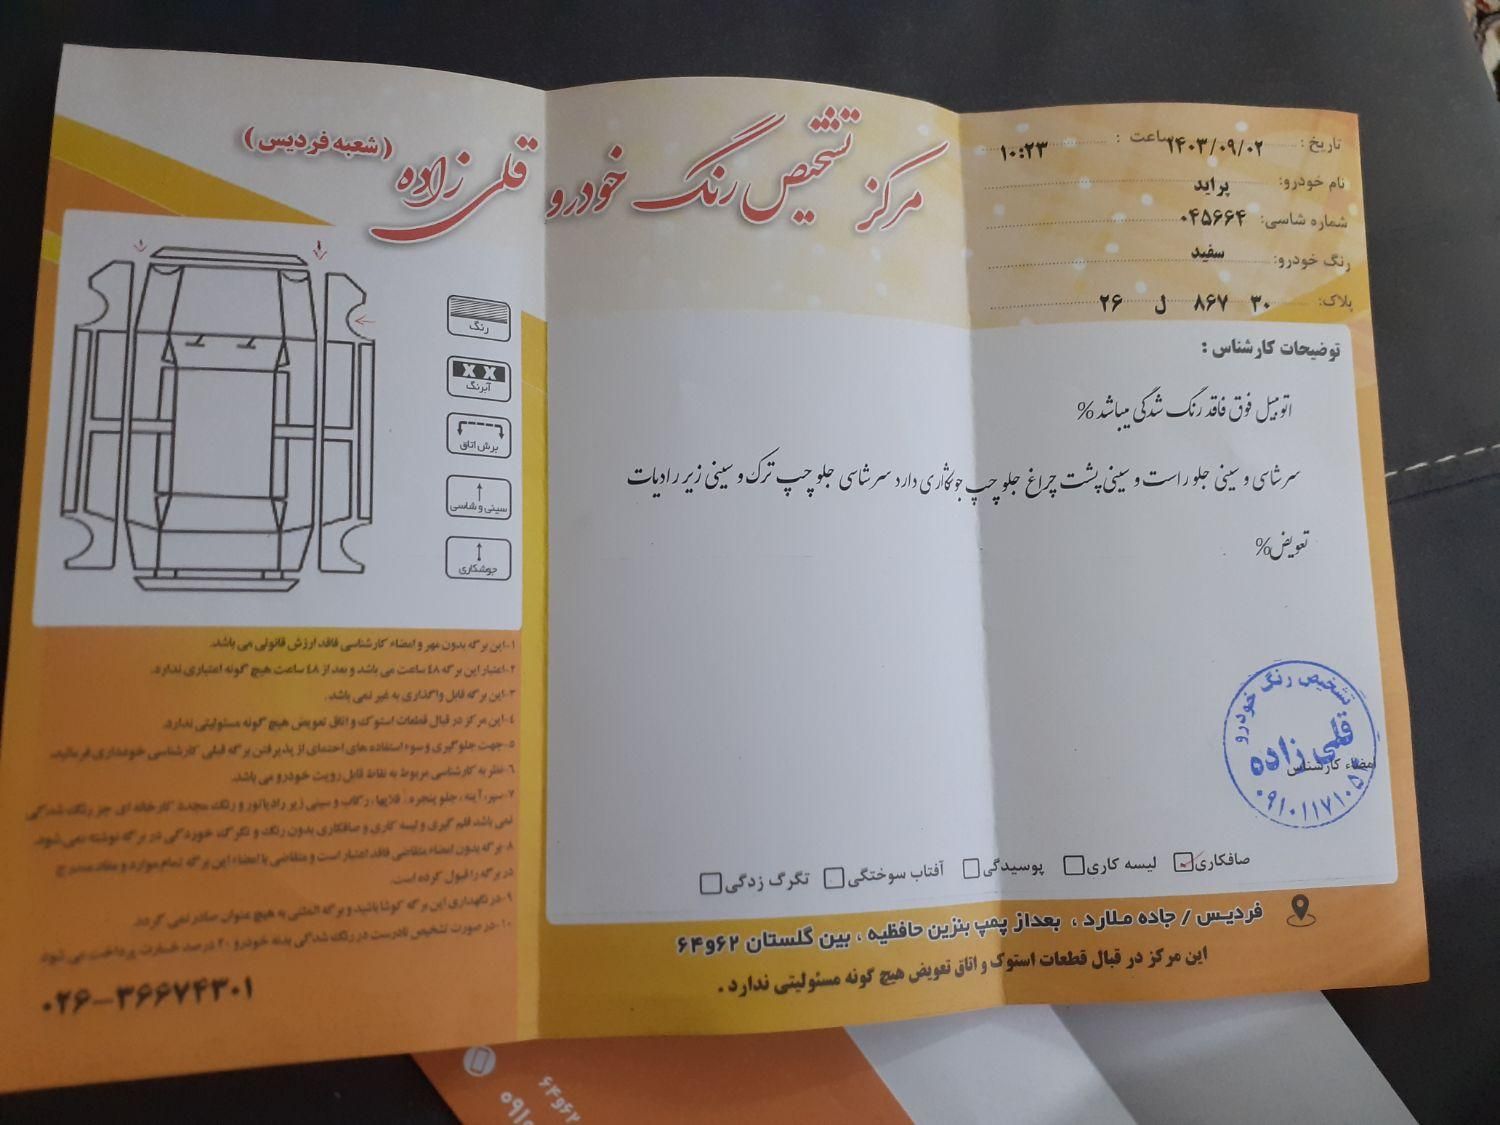 مرکز تشخیص رنگ خودرو قلی زاده
(شعبه فردیس)
تاریخ : ۱۴۰۳/۰۹/۰۲ ساعت : ۱۰:۲۳
نام خودرو: پراید
شماره شاسی: ۰۴۵۶۶۴
رنگ خودرو: سفید
پلاک: ۳۰ ۸۶۷ ل ۲۶
توضیحات کارشناس :
اتومبیل فوق فاقد رنگ شدگی میباشد%
سرشاسی و سینی جلو راست و سینی پشت چراغ جلو چپ جوشکاری دارد سرشاسی جلو چپ ترک و سینی زیر رادیات
تعویض%
تشخیص رنگ خودرو
قلی زاده
امضاء کارشناس
صافکاری
لیسه کاری
پوسیدگی
آفتاب سوختگی
تگرگ زدگی
فردیس / جاده ملارد ، بعداز پمپ بنزین حافظیه ، بین گلستان ۶۲و۶۴
این مرکز در قبال قطعات استوک و اتاق تعویض هیچ گونه مسئولیتی ندارد .
رنگ
آبرنگ
برش اتاق
سینی و شاسی
جوشکاری
۱-این برگه بدون مهر و امضاء کارشناسی فاقد ارزش قانونی می باشد.
۲-اعتبار این برگه ۴۸ ساعت می باشد و بعد از ۴۸ ساعت هیچ گونه اعتباری ندارد.
۳-این برگه قابل واگذاری به غیر نمی باشد.
۴-این مرکز در قبال قطعات استوک و اتاق تعویض هیچ گونه مسئولیتی ندارد.
۵-جهت جلوگیری و سوء استفاده های احتمای از پذیرفتن برگه قبلی کارشناسی خودداری فرمائید.
۶-نظریه کارشناسی مربوط به نقاط قابل رویت خودرو می باشد.
۷-سپر، آینه ، جلو پنجره ، قلابها، رکاب و سینی زیر رادیاتور و رنگ مجدد کارخانه ای جز رنگ شدگی
نمی باشد قلم گیری و لیسه کاری و صافکاری بدون رنگ و تگرگ خوردگی در برگه نوشته نمی شود.
۸-برگه بدون امضاء متقاضی فاقد اعتبار است و متقاضی با امضاء این برگه تمام موارد و مفاد مندرج
در برگه را قبول کرده است.
۹-در نگهداری این برگه کوشا باشید و برگه المثنی به هیچ عنوان صادر نمی گردد.
۱۰-در صورت تشخیص نادرست در رنگ شدگی بدنه خودرو ۲۰ درصد خسارت پرداخت می شود
۰۲۶-۳۶۶۷۴۳۰۱
۶۲و۶۴